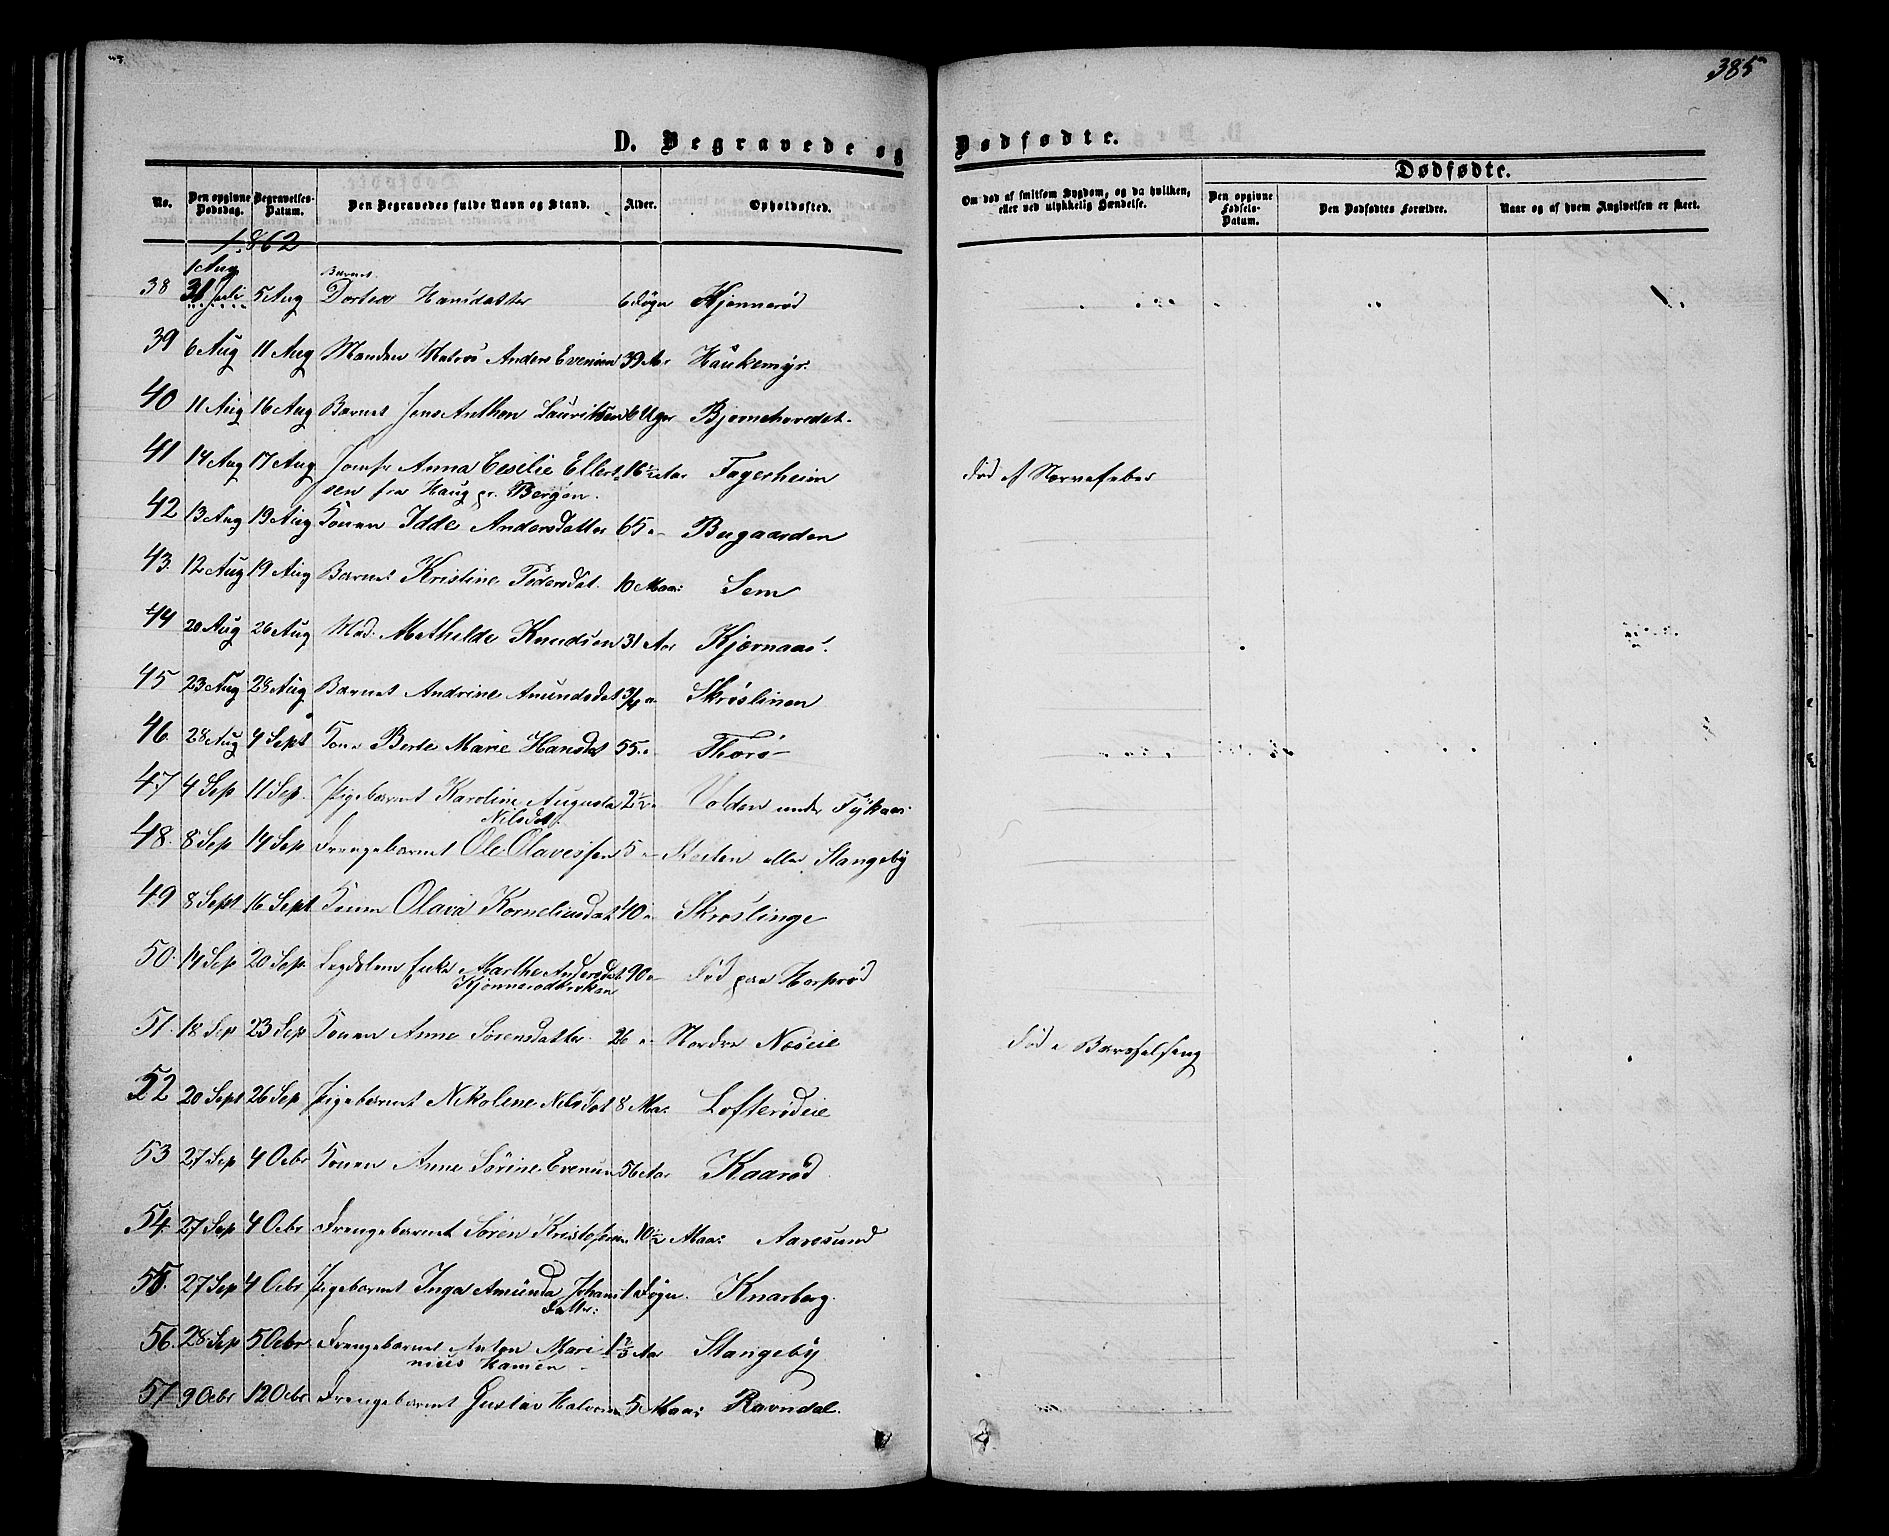 385
D. Begravede og Dødfødte.
Dødfødte.
No. Den opgivne Dødsdag. Begravelses-Datum. Den Begravedes fulde Navn og Stand. Alder. Opholdssted. Om død af smitsom Sygdom, og da hvilken, eller ved ulykkelig Hændelse. Den opgivne Fødsels-Datum. Den Dødfødtes Forældre. Naar og af hvem Angivelsen er skeet.
1862
1 Aug Barnet
38 31 Juli 5 Aug Dortea Hansdatter 6 Døgn Kjønnerød
39 6 Aug 11 Aug Manden Matros Anders Evensen 39 Aar Haukemyr.
40 11 Aug 16 Aug Barnet Jens Anthon Lauritsen 6 Uger Bjørnehovedet.
41 14 Aug 17 Aug Jomfr Anna Cesilie Ellert 16 1/2 Aar Fagerheim død af Nervefeber
sen fra Haug pr. Bergen.
42 13 Aug 19 Aug Konen Idde Andersdatter 65 " Bugaarden
43. 12 Aug 19 Aug Barnet Kristine Pedersdat. 10 Maa: Sem
44 20 Aug 26 Aug Mad: Mathilde Knudsen 31 Aar Kjærnaas.
45 23 Aug 28 Aug Barnet Andrine Amundsdat 3/4 " Skrøslinen
46. 28 Aug 4 Sept Kone Berte Marie Hansdat 55 " Thorø
47 4 Sep 11 Sep. Pigebarnet Karoline Augusta 2 1/2 " Volden under
Nilsdat.
48. 8 Sep 14 Sep Drengebarnet Ole Olavessen 5 " eller Stangeby
49 8 Sept 16 Sept Konen Olava Korneliusdat 40 " Skroslinge
50. 14 Sep 20 Sep. Lægdslem Enke Marthe Andersdat 90 " Død paa Horperød
Kjønnerødbrekken
51. 18 Sep 23 Sep Konen Anne Sørensdatter 26 " Nordre Nøseie Død i Barselseng
52 20 Sept 26 Sep Pigebarnet Nikolene Nilsdat 8 Maa. Lofterødeie
53 27 Sep 4 Ocbr Konen Anne Sørine Evensen 56 Aar Kaarød
54. 27 Sep 4 Ocbr Drengebarnet Søren Kristofersen 10 1/2 Maa: Aarøsund
55. 27 Sep 4 Ocbr Pigebarnet Inga Amunda Johans 1 Døgn. Knarberg.
Datter:
56. 28 Sep 5 Ocbr Drengebarnet Anton Mari Aar Stangeby
nius Hansen
57 9 Ocbr 12 Ocbr Drengebarnet Gustav Halvorsen 5 Maa: Ravndal.